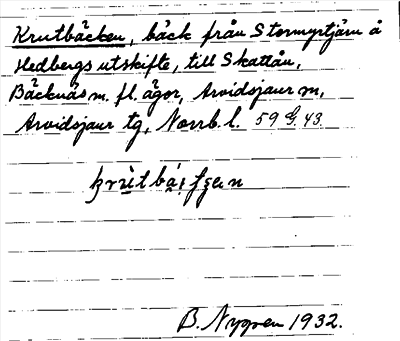 Krutbäcken, bäck från Stormyrtjärn å
Hedbergs utskifte, till Skattån,
Bäcknäs m. fl. ägor, Arvidsjaur m,
Arvidsjaur tg, Norrb. l. 59 G. 43.
B. Nygren 1932.